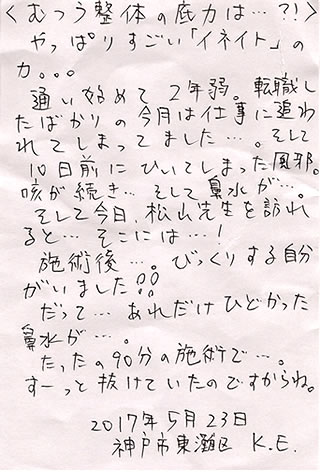 〈むつう整体の底力は…?!〉
やっぱりすごい「イネイト」の
力。。。
通い始めて2年弱。転職し
たばかりの今月は仕事に追わ
れてしまってました…。そして
10日前にひいてしまった風邪。
咳が続き…そして鼻水が…。
そして今日、松山先生を訪れ
ると…そこには…!
施術後…。びっくりする自分
がいました!!
だって…あれだけひどかった
鼻水が…。
たったの90分の施術で…。
すーっと抜けていたのですからね。
2017年5月23日
神戸市東灘区 K.E.